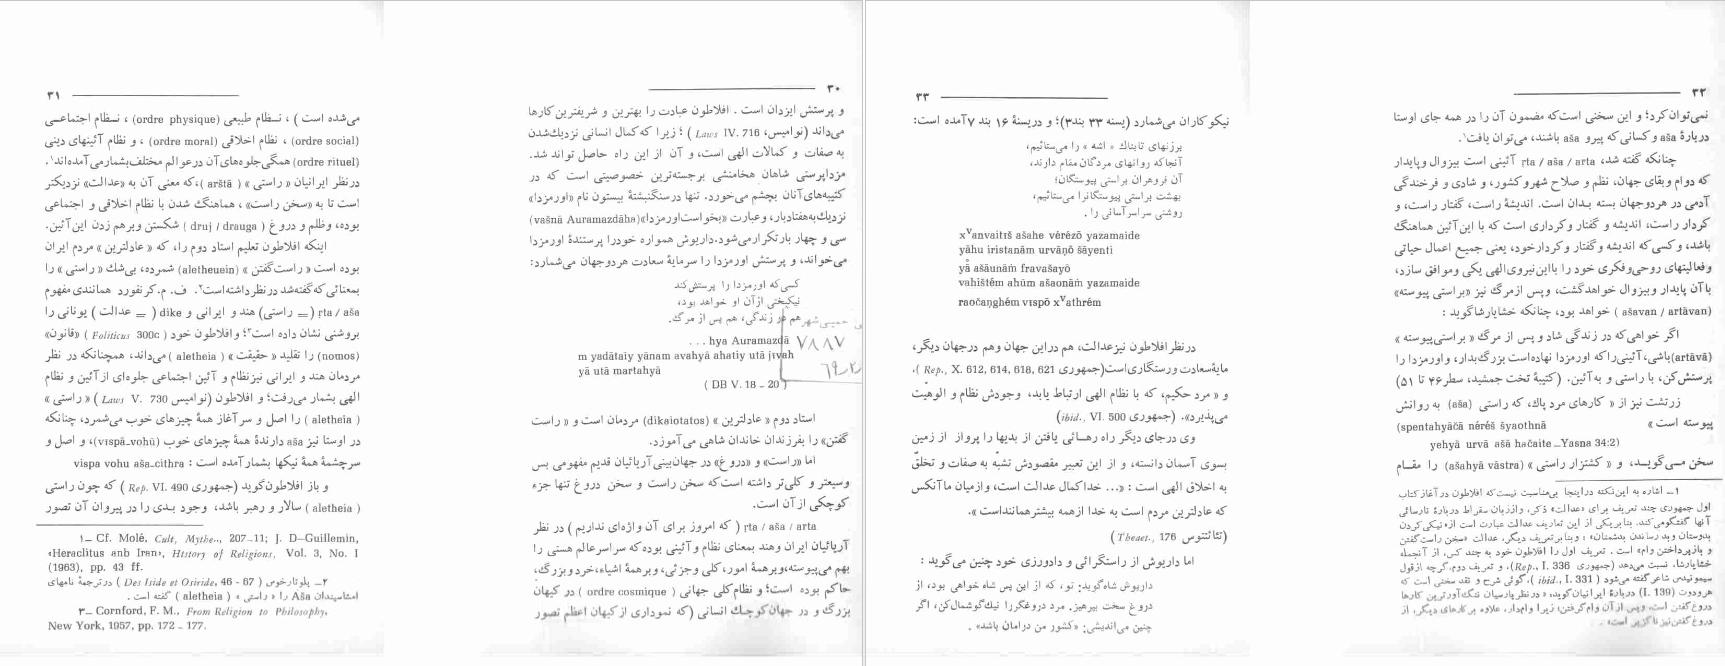 ۳۰
و پرستش ایزدان است . افلاطون عبادت را بهترین و شریفترین کارها
می‌داند (نوامیس، Laws IV. 716 ) ؛ زیرا که کمال انسانی نزدیك‌شدن
به صفات و کمالات الهی است، و آن از این راه حاصل تواند شد.
مزداپرستی شاهان هخامنشی برجسته‌ترین خصوصیتی است که در
کتیبه‌های آنان بچشم می‌خورد. تنها در سنگنبشتهٔ بیستون نام «اورمزدا»
نزدیك به هفتاد بار، و عبارت «بخواست اورمزدا» (vašnā Auramazdāha)
سی و چهار بار تکرار می‌شود. داریوش همواره خود را پرستندهٔ اورمزدا
می‌خواند، و پرستش اورمزدا را سرمایهٔ سعادت هردو جهان می‌شمارد:
کسی که اورمزدا را پرستش کند
نیکبختی از آن او خواهد بود،
هم در زندگی، هم پس از مرگ.
. . . hya Auramazdā
m yadātaiy yānam avahyā ahatiy utā jīvah
yā utā martahyā
( DB V. 18 - 20 )
استاد دوم « عادلترین » (dikaiotatos) مردمان است و « راست
گفتن» را بفرزندان خاندان شاهی می‌آموزد.
اما «راست» و «دروغ» در جهان‌بینی آریائیان قدیم مفهومی بس
وسیعتر و کلی‌تر داشته است که سخن راست و سخن دروغ تنها جزء
کوچکی از آن است.
ṛta / aša / arta ( که امروز برای آن واژه‌ای نداریم ) در نظر
آریائیان ایران و هند بمعنای نظام و آئینی بوده که سراسر عالم هستی را
بهم می‌پیوسته، و بر همهٔ امور، کلی و جزئی، و بر همهٔ اشیاء، خرد و بزرگ،
حاکم بوده است؛ و نظام کلی جهانی ( ordre cosmique ) در کیهان
بزرگ و در جهان کوچك انسانی (که نموداری از کیهان اعظم تصور
۳۱
می‌شده است ) ، نظام طبیعی (ordre physique) ، نظام اجتماعی
(ordre social) ، نظام اخلاقی (ordre moral) ، و نظام آئینهای دینی
(ordre rituel) همگی جلوه‌های آن در عوالم مختلف بشمار می‌آمده‌اند۱.
در نظر ایرانیان « راستی » ( arštā )، که معنی آن به «عدالت» نزدیکتر
است تا به «سخن راست»، هماهنگ شدن با نظام اخلاقی و اجتماعی
بوده، و ظلم و دروغ ( druj / drauga ) شکستن و برهم زدن این آئین.
اینکه افلاطون تعلیم استاد دوم را، که « عادلترین » مردم ایران
بوده است « راست گفتن » (aletheuein) شمرده، بی‌شك « راستی » را
بمعنائی که گفته شد در نظر داشته است۲. ف. م. کرنفورد همانندی مفهوم
ṛta / aša (= راستی) هند و ایرانی و dike ( = عدالت ) یونانی را
بروشنی نشان داده است۳؛ و افلاطون خود ( Politicus 300c ) «قانون»
(nomos) را تقلید « حقیقت » ( aletheia ) می‌داند، همچنانکه در نظر
مردمان هند و ایرانی نیز نظام و آئین اجتماعی جلوه‌ای از آئین و نظام
الهی بشمار می‌رفت؛ و افلاطون (نوامیس Laws V. 730 ) « راستی »
( aletheia ) را اصل و سرآغاز همهٔ چیزهای خوب می‌شمرد، چنانکه
در اوستا نیز aša دارندهٔ همهٔ چیزهای خوب (vīspā_vohū)، و اصل و
سرچشمهٔ همهٔ نیکها بشمار آمده است : vispa vohu aša_cithra
و باز افلاطون گوید (جمهوری Rep. VI. 490 ) که چون راستی
( aletheia ) سالار و رهبر باشد، وجود بدی را در پیروان آن تصور
۱_ Cf. Molé, Cult, Mythe.., 207-11; J. D–Guillemin,
«Heraclitus anb Iran», History of Religions, Vol. 3, No. I
(1963), pp. 43 ff.
۲_ پلوتارخوس ( Des Iside et Osiride, 46 - 67 ) در ترجمهٔ نامهای
امشاسپندان Aša را « راستی » ( aletheia ) گفته است .
۳_ Cornford, F. M., From Religion to Philosophy,
New York, 1957, pp. 172 - 177.
۳۲
نمی‌توان کرد؛ و این سخنی است که مضمون آن را در همه جای اوستا
دربارهٔ aša و کسانی که پیرو aša باشند، می‌توان یافت۱.
چنانکه گفته شد، ṛta / aša / arta آئینی است بیزوال و پایدار
که دوام و بقای جهان، نظم و صلاح شهر و کشور، و شادی و فرخندگی
آدمی در هردو جهان بسته بدان است. اندیشهٔ راست، گفتار راست، و
کردار راست، اندیشه و گفتار و کرداری است که با این آئین هماهنگ
باشد، و کسی که اندیشه و گفتار و کردار خود، یعنی جمیع اعمال حیاتی
و فعالیتهای روحی و فکری خود را با این نیروی الهی یکی و موافق سازد،
با آن پایدار و بیزوال خواهد گشت، و پس از مرگ نیز «براستی پیوسته»
( ašavan / artāvan ) خواهد بود، چنانکه خشایارشا گوید :
اگر خواهی که در زندگی شاد و پس از مرگ « براستی پیوسته »
(artāvā) باشی، آئینی را که اورمزدا نهاده است بزرگ بدار، و اورمزدا را
پرستش کن، با راستی و به آئین. (کتیبهٔ تخت جمشید، سطر ۴۶ تا ۵۱)
زرتشت نیز از « کارهای مرد پاك، که راستی (aša) به روانش
پیوسته است » (spentahyāčā néréš šyaothnā
yehyā urvā ašā hačaite _Yasna 34:2)
سخن می‌گوید، و « کشتزار راستی » (ašahyā vāstra) را مقام
۱_ اشاره به این نکته در اینجا بی‌مناسبت نیست که افلاطون در آغاز کتاب
اول جمهوری چند تعریف برای «عدالت» ذکر، و از زبان سقراط دربارهٔ نارسائی
آنها گفتگو می‌کند. بنا بر یکی از این تعاریف عدالت عبارت است از «نیکی کردن
بدوستان و بد رساندن بدشمنان» ؛ و بنا بر تعریف دیگر، عدالت «سخن راست گفتن
و باز پرداختن وام» است . تعریف اول را افلاطون خود به چند کس، از آنجمله
خشایارشا، نسبت می‌دهد (جمهوری Rep., I. 336)، و تعریف دوم، گرچه از قول
سیمونیدس شاعر گفته می‌شود ( ibid., I. 331 )، گوئی شرح و نقد سخنی است که
هرودوت (I. 139) دربارهٔ ایرانیان گوید، « در نظر پارسیان ننگ‌آورترین کارها
دروغ گفتن است، و پس از آن وام گرفتن؛ زیرا وامدار، علاوه بر کارهای دیگر، از
دروغ گفتن نیز ناگزیر است» .
۳۳
نیکوکاران می‌شمارد (یسنه ۳۳ بند ۳)؛ و در یسنهٔ ۱۶ بند ۷ آمده است:
برزنهای تابناك « اشه » را می‌ستائیم،
آنجا که روانهای مردگان مقام دارند،
آن فروهران براستی پیوستگان؛
بهشت براستی پیوستگانرا می‌ستائیم،
روشنی سراسر آسانی را .
xᵛanvaitīš ašahe vérézō yazamaide
yāhu iristanām urvāņō šāyenti
yå ašāunąm fravašayō
vahištēm ahūm ašaonąm yazamaide
raočaņghém vīspō xᵛathrém
در نظر افلاطون نیز عدالت، هم در این جهان و هم در جهان دیگر،
مایهٔ سعادت و رستگاری است (جمهوری Rep., X. 612, 614, 618, 621 )،
و « مرد حکیم، که با نظام الهی ارتباط یابد، وجودش نظام و الوهیت
می‌پذیرد». (جمهوری ibid., VI. 500)
وی در جای دیگر راه رهائی یافتن از بدیها را پرواز از زمین
بسوی آسمان دانسته، و از این تعبیر مقصودش تشبّه به صفات و تخلّق
به اخلاق الهی است : «... خدا کمال عدالت است، و از میان ما آنکس
که عادلترین مردم است به خدا از همه بیشتر همانند است».
(تئائتتوس Theaet., 176)
اما داریوش از راستگرائی و دادورزی خود چنین می‌گوید :
داریوش شاه گوید: تو، که از این پس شاه خواهی بود، از
دروغ سخت بپرهیز. مرد دروغگر را نیك گوشمال کن، اگر
چنین می‌اندیشی: «کشور من در امان باشد» .